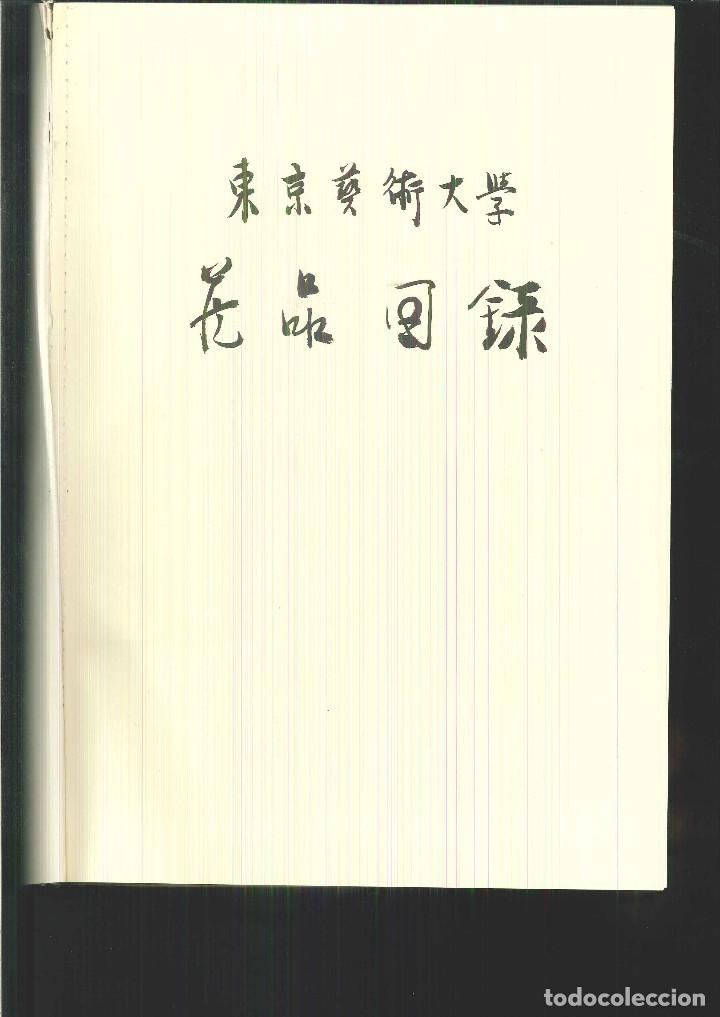 東京藝術大學
蔵品図録
todocoleccion